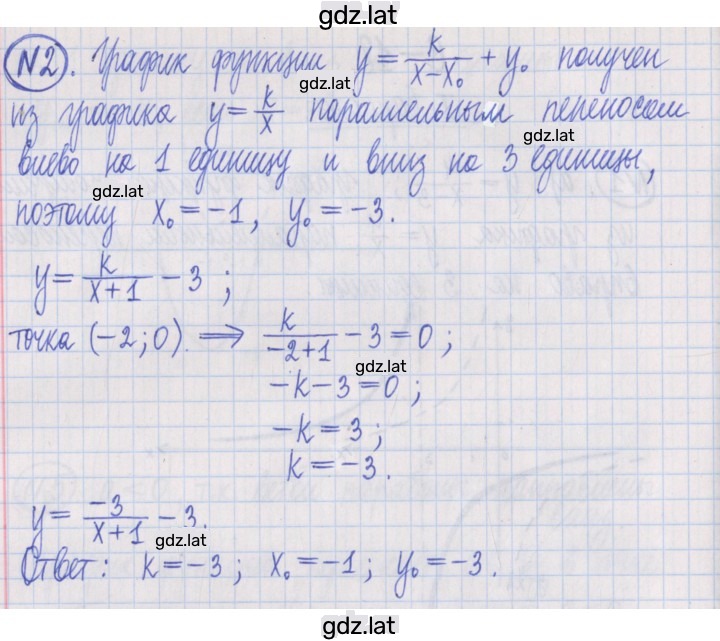 gdz.lat
N2. График функции y = k/(x-x₀) + y₀ получен
gdz.lat
из графика y = k/x параллельным переносом
gdz.lat
влево на 1 единицу и вниз на 3 единицы,
gdz.lat
поэтому x₀ = -1, y₀ = -3.
y = k/(x+1) - 3;
точка (-2; 0). ⟹ k/(-2+1) - 3 = 0;
gdz.lat
-k - 3 = 0;
-k = 3;
k = -3.
y = -3/(x+1) - 3.
gdz.lat
Ответ: k = -3; x₀ = -1; y₀ = -3.
gdz.lat